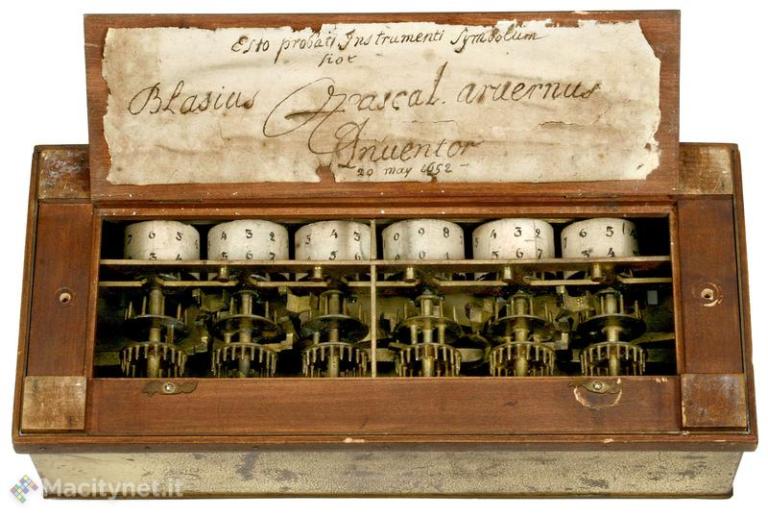 Esto probati Instrumenti Symbolum
hoc
Blasius Pascal. arvernus
Inventor
20 may 1652
7 6 3 5 4 3 2 5 4 3 0 9 8 5 4 3 7 6 5
Macitynet.it